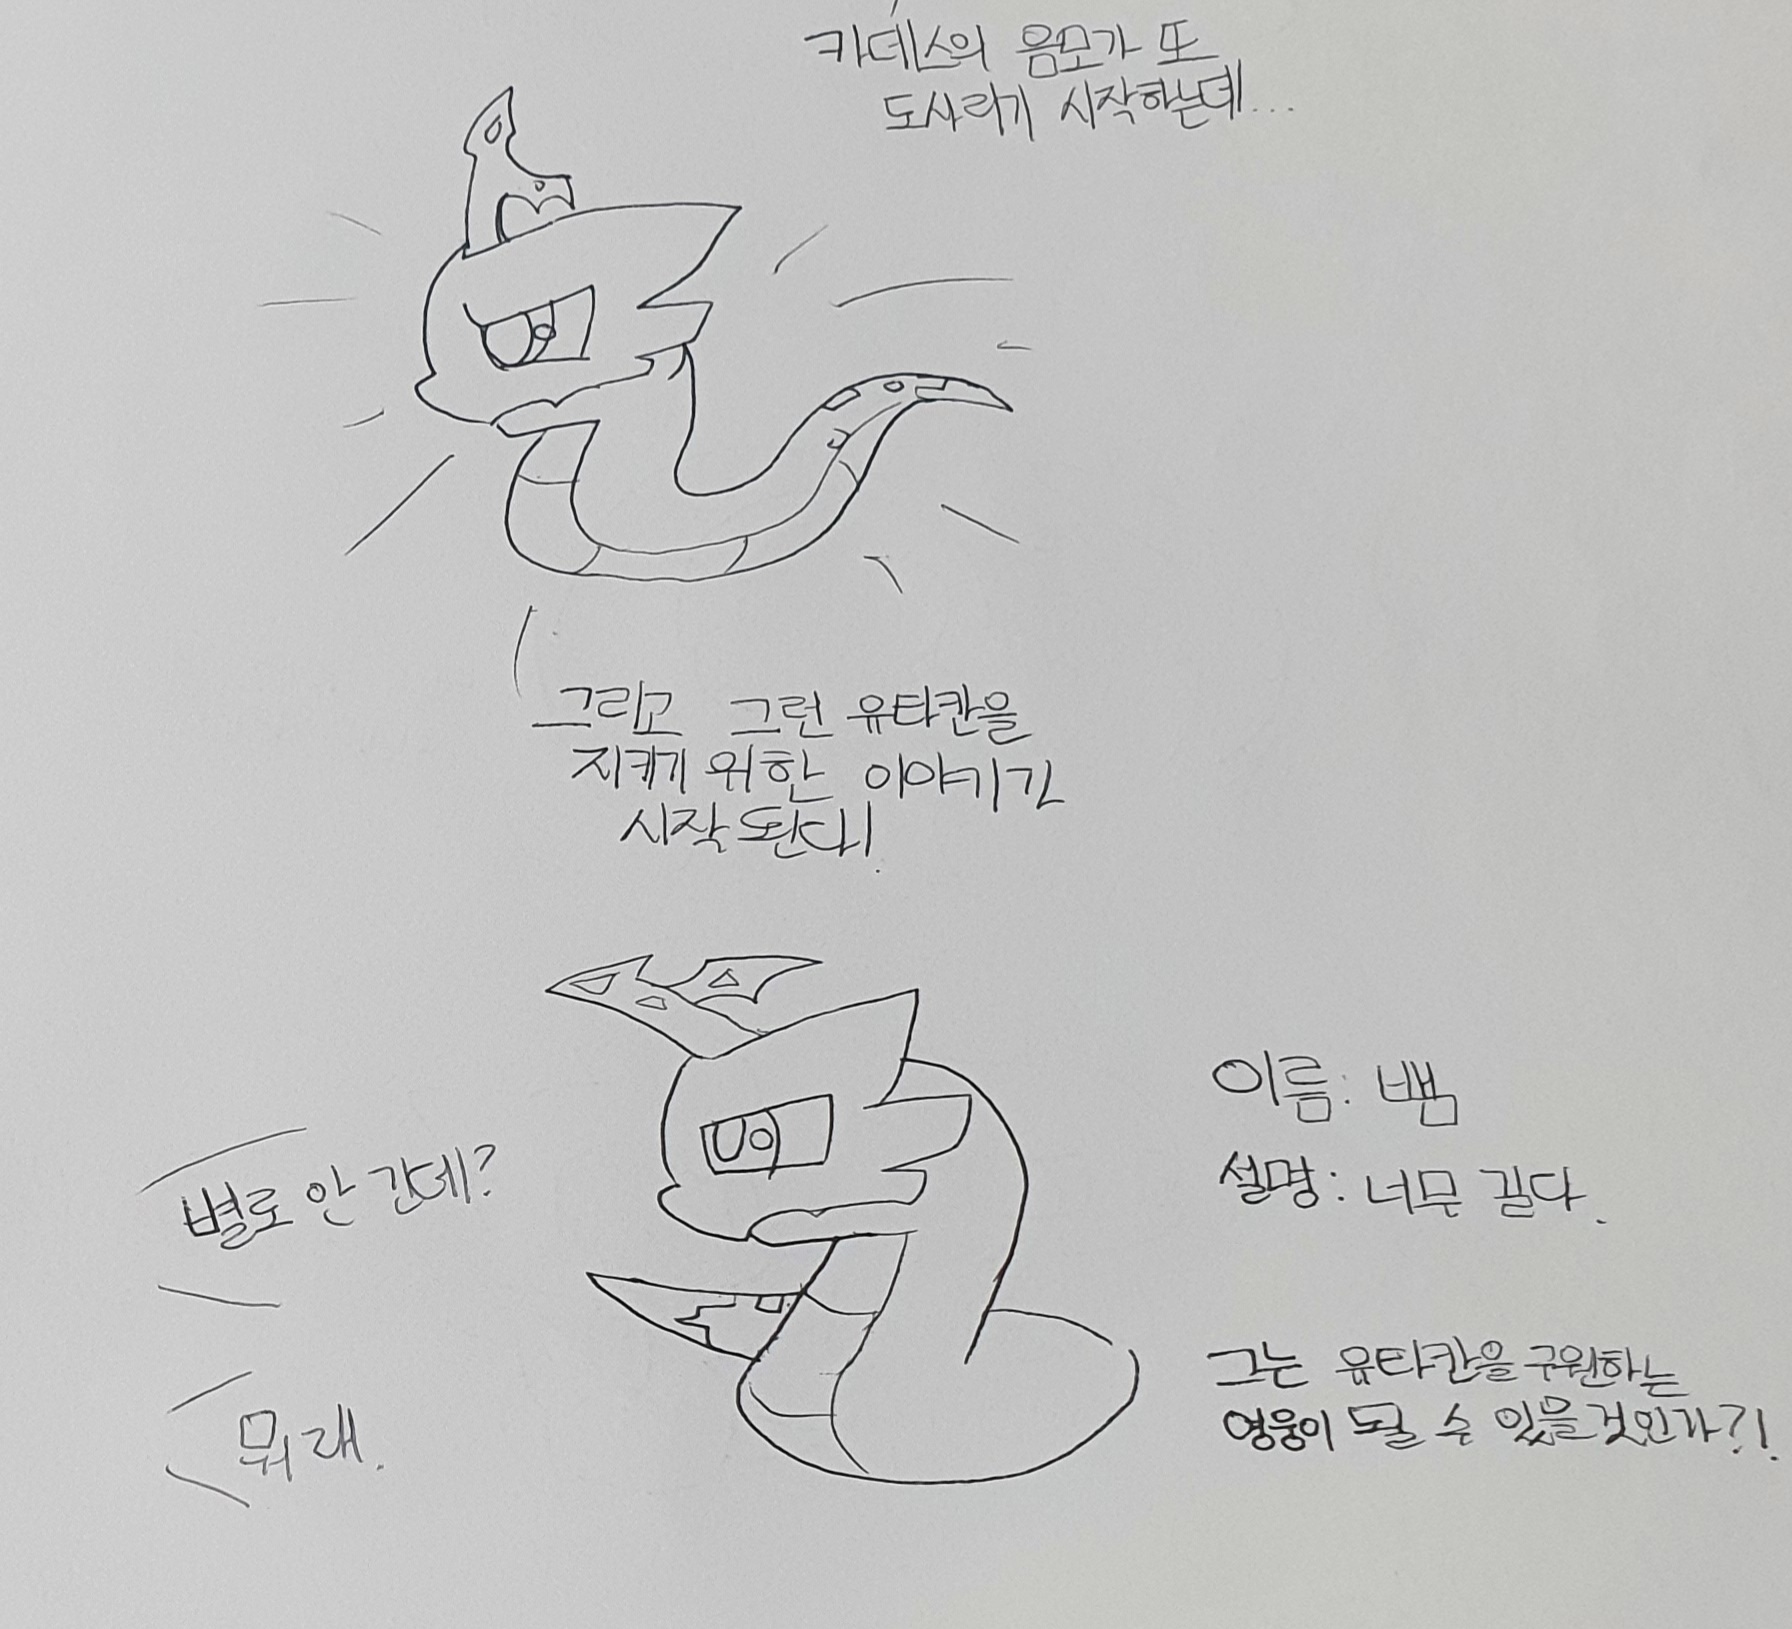 카데스의 음모가 또
도사리기 시작하는데...
그리고 그런 유타칸을
지키기 위한 이야기가
시작된다!
별로 안 긴데?
뭐래.
이름: 뱀
설명: 너무 길다.
그는 유타칸을 구원하는
영웅이 될 수 있을 것인가?!